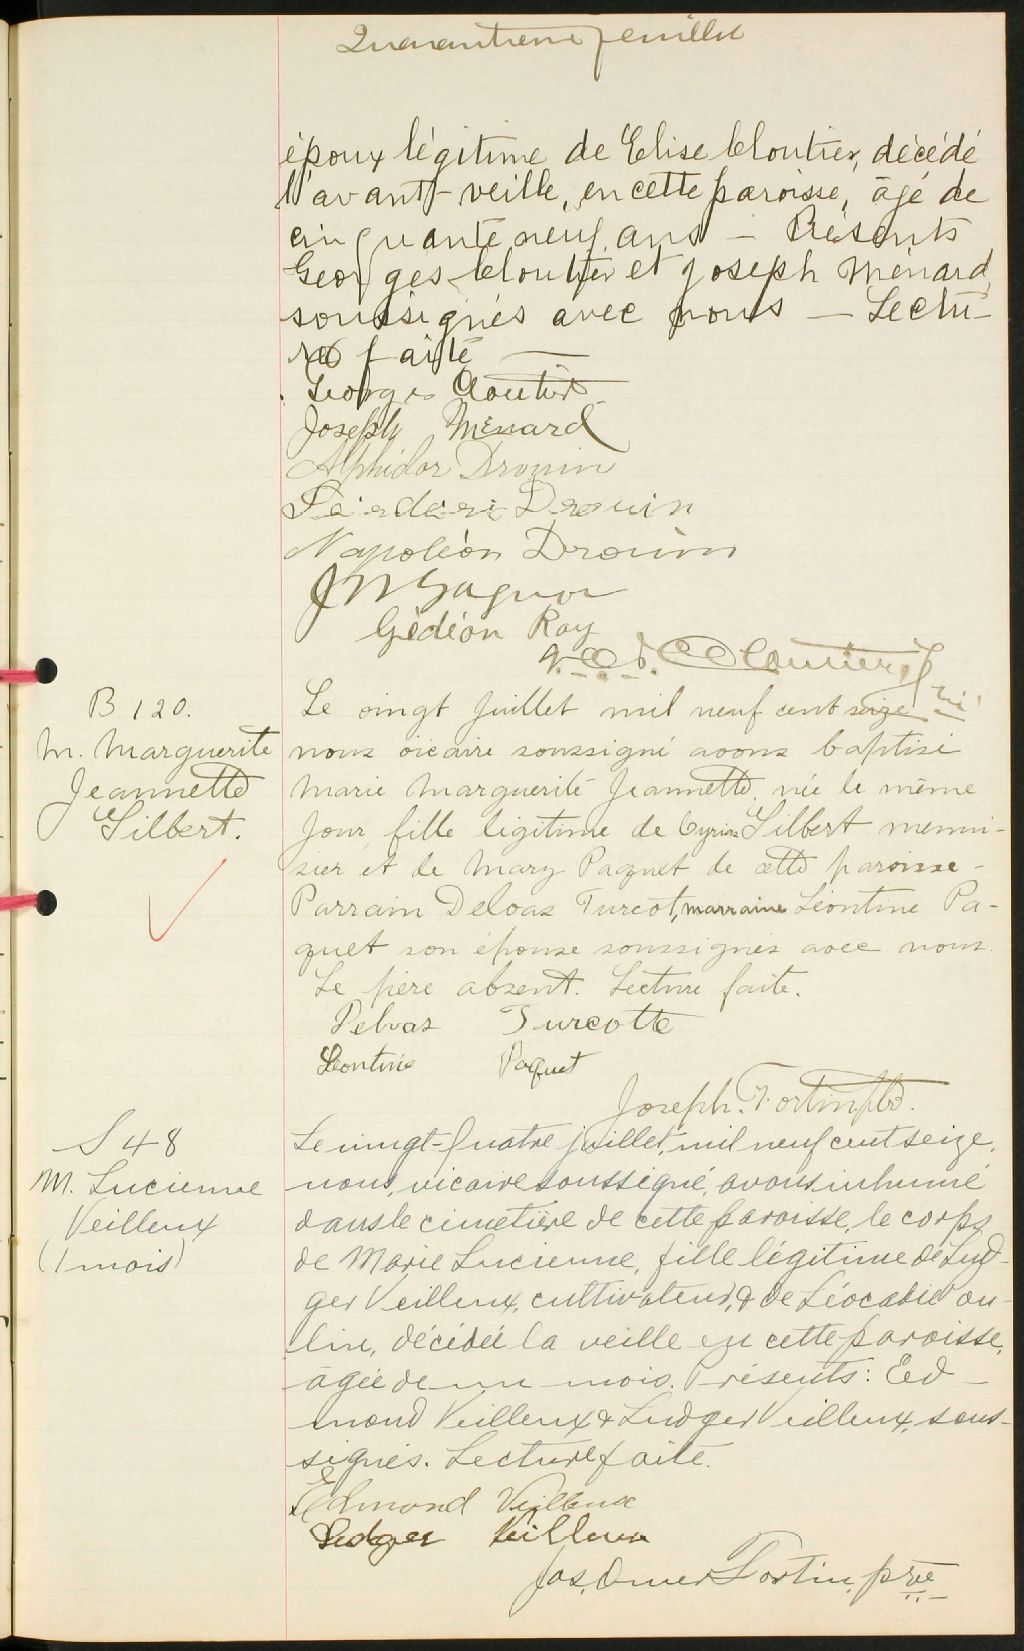 Quarantieme feuillet
époux légitime de Elise Cloutier, décédé
l'avant-veille, en cette paroisse, âgé de
cinquante neuf ans — Présents
Georges Cloutier et Joseph Ménard
soussignés avec nous — Lectu-
re faite —
Georges Cloutier
Joseph Ménard
Alphidor Drouin
Drouin
Napoléon Drouin
J N Gagnon
Gédéon Roy
Cloutier, Ptre
B 120.
M. Marguerite
Jeannette
Gilbert.
Le vingt Juillet mil neuf cent seize
nous vicaire soussigné avons baptisé
Marie Marguerite Jeannette, née le même
jour, fille légitime de Cyrias Gilbert menui-
sier et de Mary Paquet de cette paroisse -
Parrain Delvas Turcot, marraine Léontine Pa-
quet son épouse soussignés avec nous.
Le père absent. Lecture faite.
Delvas Turcotte
Leontine Paquet
Joseph. Fortin ptre.
S 48
M. Lucienne
Veilleux
(1 mois)
Le vingt-quatre juillet, mil neuf cent seize,
nous, vicaire soussigné, avons inhumé
dans le cimetière de cette paroisse, le corps
de Marie Lucienne, fille légitime de Lud-
ger Veilleux, cultivateur, & de Léocadie Pou-
lin, décédée la veille en cette paroisse,
âgée de un mois. Présents: Ed-
mond Veilleux & Ludger Veilleux, sous-
signés. Lecture faite.
Edmond Veilleux
Ludger Veilleux
Jos. Omer Fortin, ptre